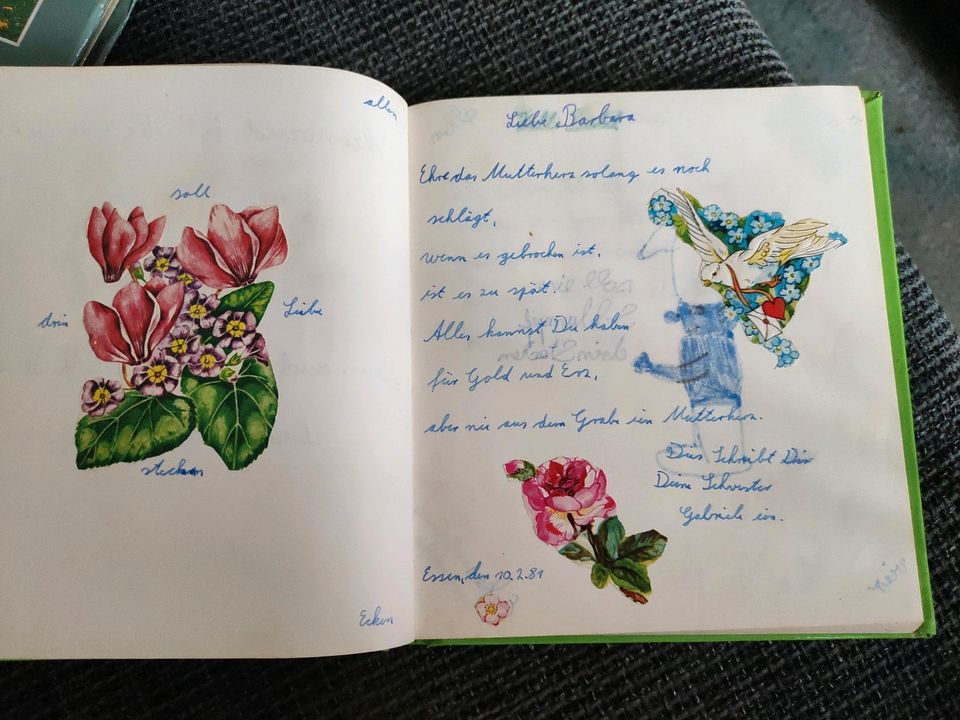 allen
soll
drin
Liebe
stecken
Ecken
Liebe Barbara
Ehre das Mutterherz solang es noch
schlägt,
wenn es gebrochen ist,
ist es zu spät.
Alles kannst Du haben
für Gold und Erz,
aber nie aus dem Grabe ein Mutterherz.
Dies Schreibt Dir
Deine Schwester
Gabriele ein.
Essen, den 10.2.81